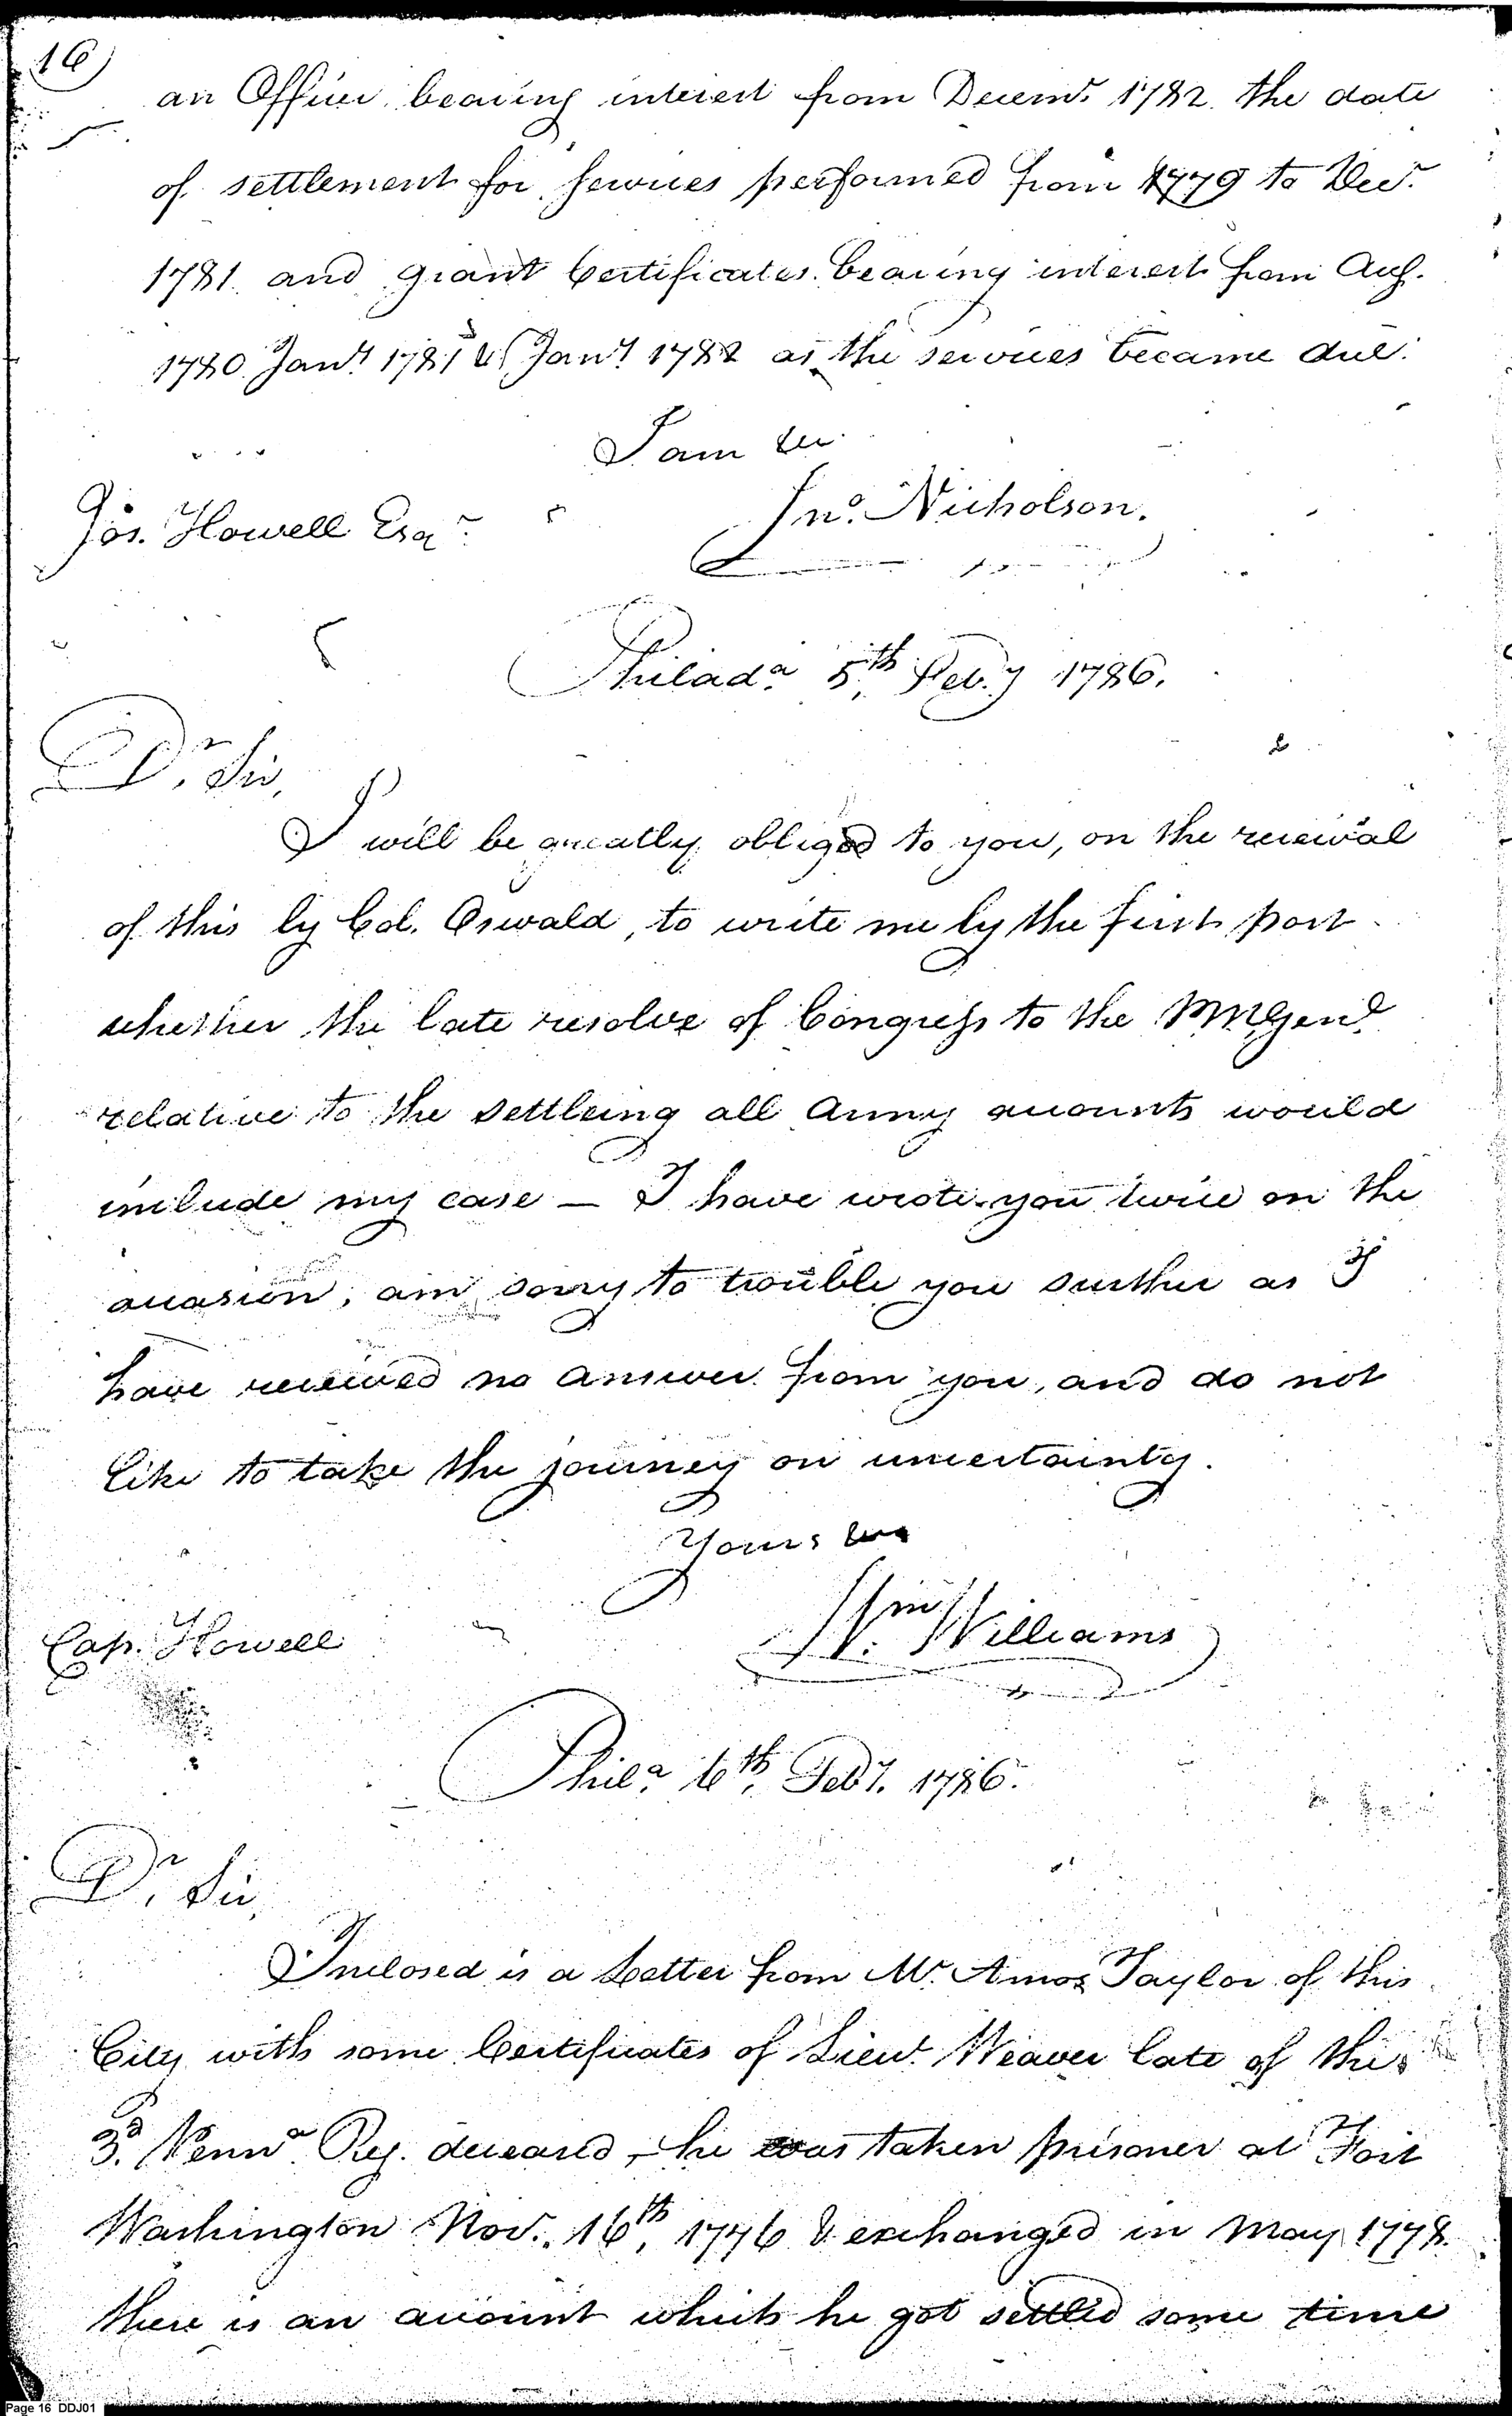 16
an Officer bearing interest from Decemr. 1782. the date
of settlement for services performed from 1779 to Decr.
1781. and grant Certificates bearing interest from Aug.
1780. Jany. 1781 & Jany. 1782 as the services became due.
I am &c.
Jno. Nicholson.
Jos. Howell Esqr.
Philada. 5th. Feb.y 1786.
Dr. Sir,
I will be greatly obliged to you, on the receival
of this by Col. Oswald, to write me by the first post
whether the late resolve of Congress to the PMGenl.
relative to the settleing all Army accounts would
include my case — I have wrote you twice on the
occasion, am sorry to trouble you further as I
have received no answer from you, and do not
like to take the journey on uncertainty.
Yours &c
Wm. Williams
Cap. Howell
Phila. 6th. Feby. 1786.
Dr. Sir,
Inclosed is a Letter from Mr. Amos Taylor of this
City with some Certificates of Lieut. Weaver late of the
3d. Penna. Reg. deceased, he was taken prisoner at Fort
Washington Nov. 16th. 1776 & exchanged in May 1778.
there is an account which he got settled some time
Page 16 DDJ01